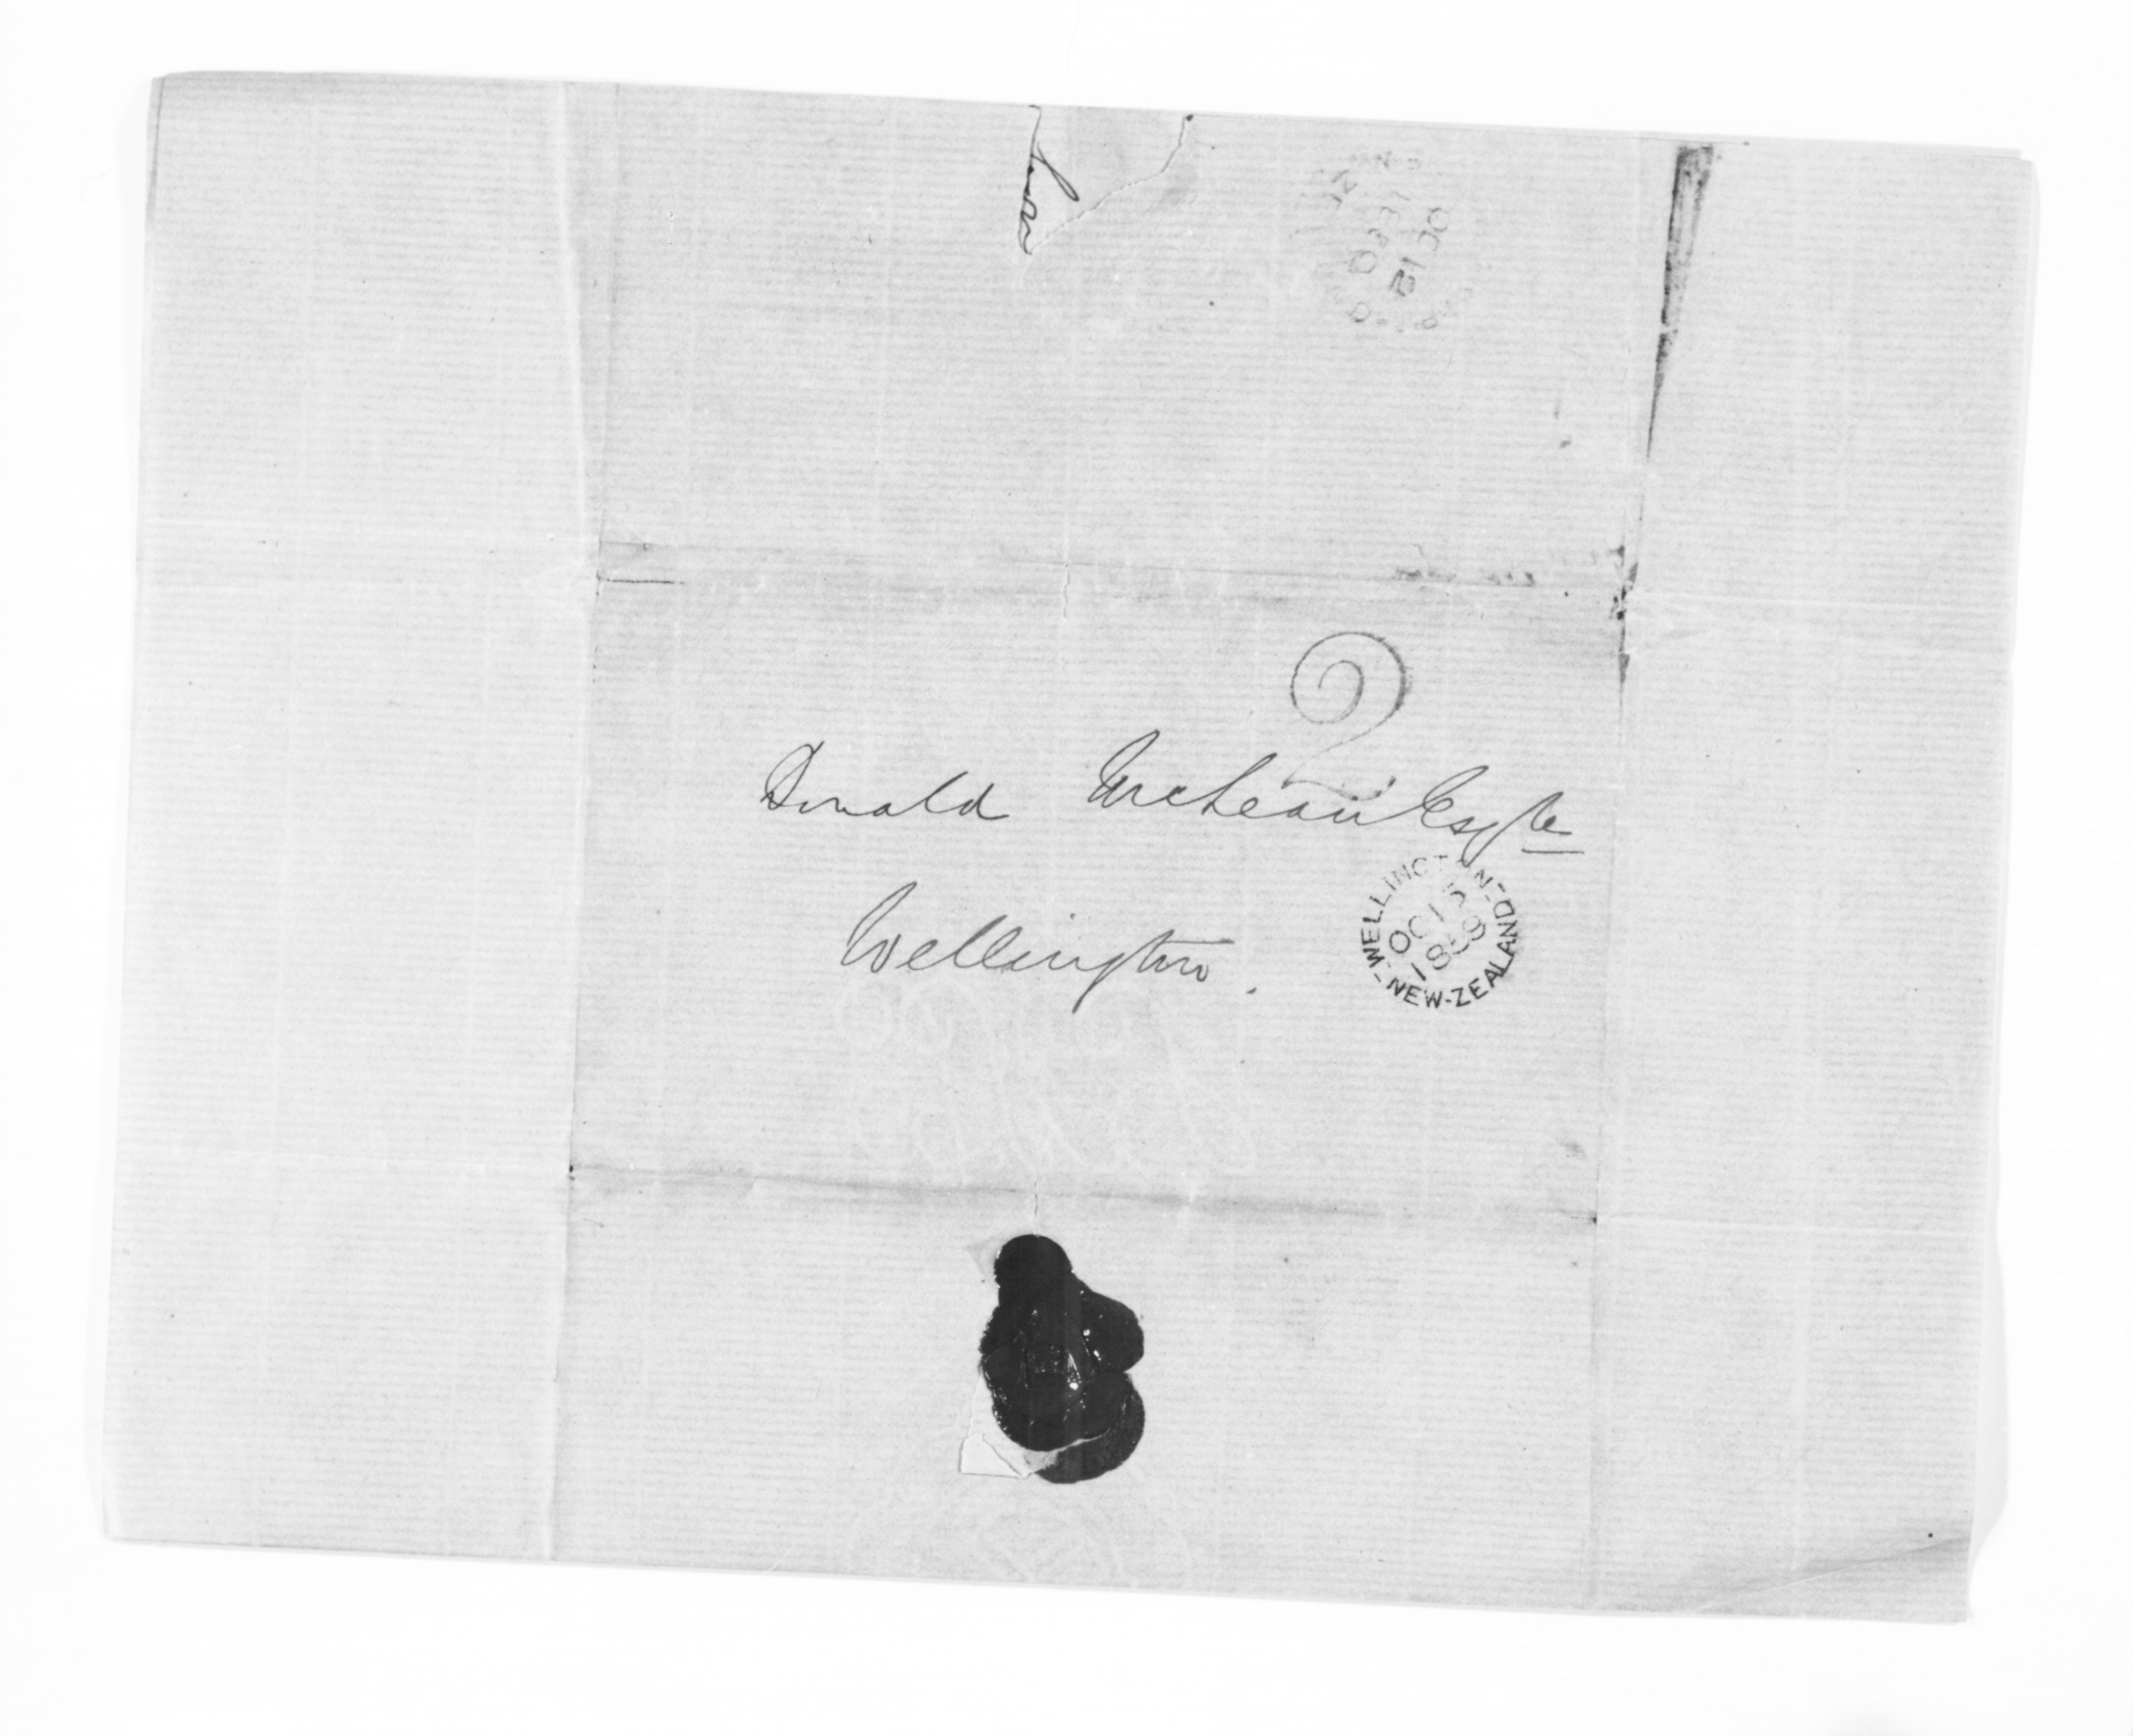 2
Donald McLean Esqre
Wellington.
WELLINGTON
OC 15
1858
NEW-ZEALAND